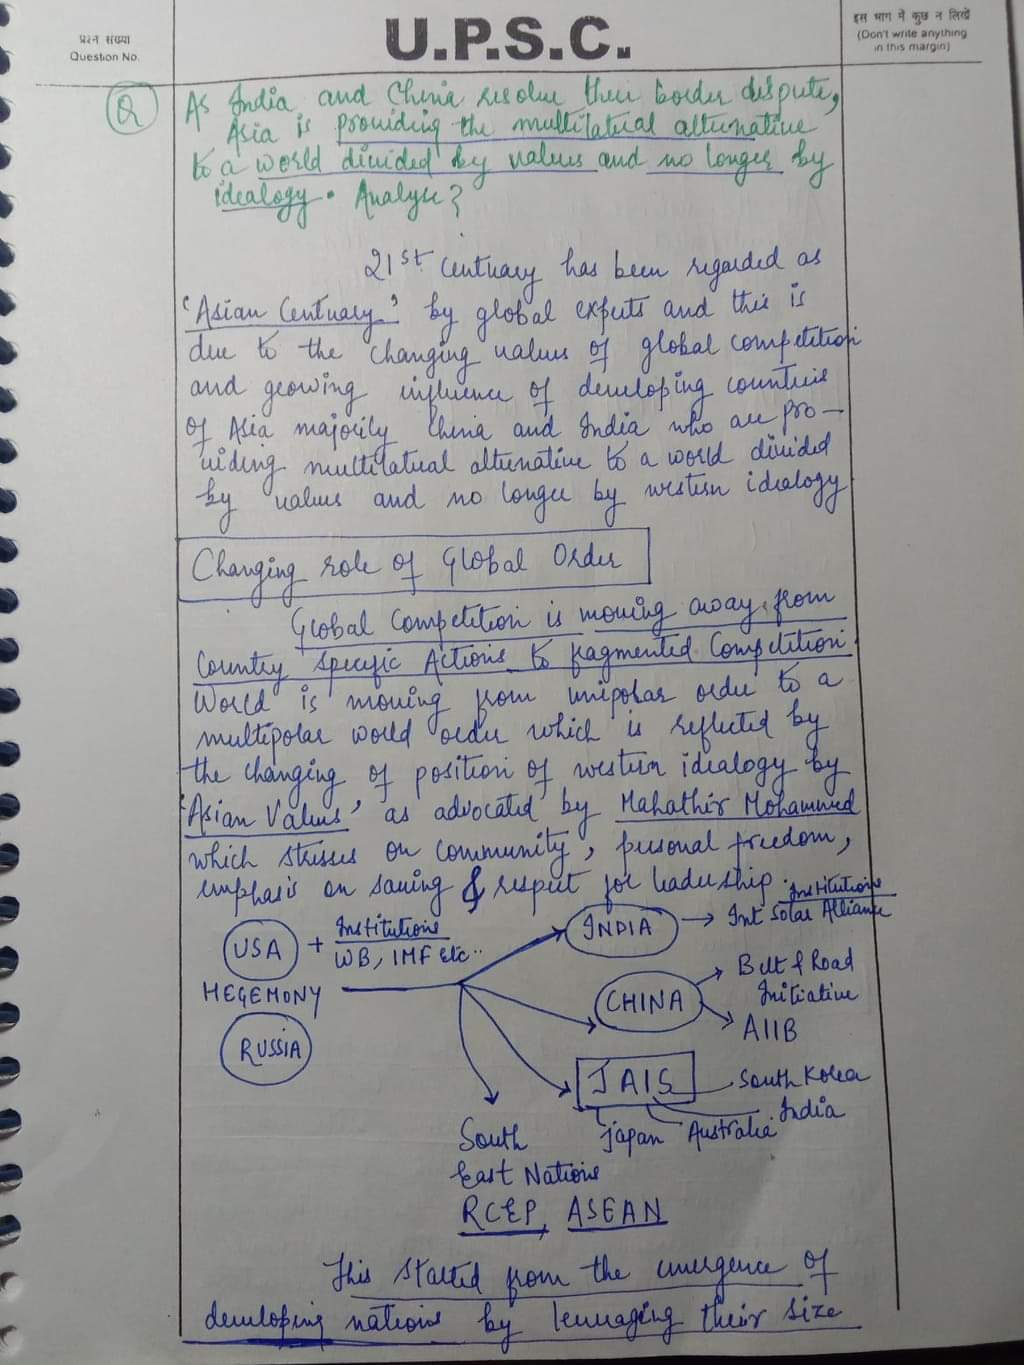 प्रश्न संख्या
Question No.
U.P.S.C.
इस भाग में कुछ न लिखें
(Don't write anything
in this margin)
Q
As India and China resolve their border dispute,
Asia is providing the multilateral alternative
to a world divided by values and no longer by
idealogy. Analyse?
21st Centuary has been regarded as
'Asian Centuary' by global experts and this is
due to the changing values of global competition
and growing influence of developing countries
of Asia majorily China and India who are pro-
viding multilateral alternative to a world divided
by values and no longer by western idealogy
Changing role of Global Order
Global Competition is moving away from
Country Specific Actions to fragmented Competition.
World is moving from unipolar order to a
multipolar world order which is reflected by
the changing of position of western idealogy by
'Asian Values' as advocated by Mahathir Mohammed
which stresses on community, personal freedom,
emphasis on saving & respect for leadership.
USA + Institutions
WB, IMF etc..
HEGEMONY
RUSSIA
INDIA → Institutions
Int Solar Alliance
CHINA
Belt & Road
Initiative
AIIB
JAIS
South Korea
India
Japan Australia
South
East Nations
RCEP, ASEAN
This started from the emergence of
developing nations by leveraging their size